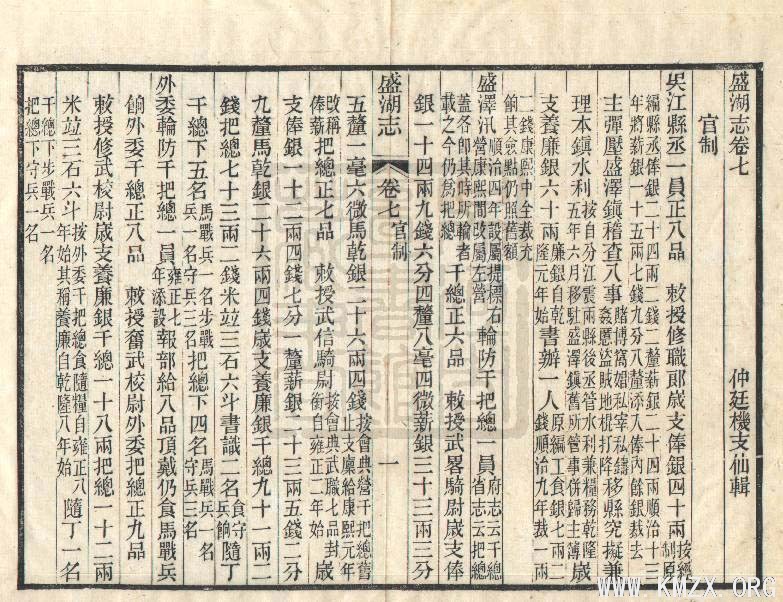 盛湖志卷七 仲廷機支仙輯
官制
吳江縣丞一員正八品 敕授修職郎歲支俸銀四十兩按經制原
編縣丞俸銀二十四兩二錢二釐薪銀二十四兩順治十三
年將薪銀一十五兩七錢九分八釐添入俸內餘銀裁去
主彈壓盛澤鎮稽查八事賭博窩娼私宰私鑄姦慝盜賊地棍打降移縣究擬兼
理本鎮水利按自分江震兩縣後丞管水利兼糧務乾隆五年六月移駐盛澤鎮舊所管事併歸主簿歲
支養廉銀六十兩廉銀自乾隆元年始書辦一人原編工食銀七兩二錢順治九年裁一兩
二錢康熙中全裁充餉其僉點仍照舊額
盛澤汛順治四年設屬提標右營康熙間改屬左營輪防千把總一員府志云千總省志云把總
蓋各即其時所輪者載之今仍爲把總 千總正六品 敕授武畧騎尉歲支俸
銀一十四兩九錢六分四釐八毫四微薪銀三十三兩三分
盛湖志 卷七 官制 一
五釐一毫六微馬乾銀二十六兩四錢按會典營千把總舊止支廩給康熙元年
改稱俸薪把總正七品 敕授武信騎尉按會典武職七品封銜自雍正二年始歲
支俸銀一十二兩四錢七分一釐薪銀二十三兩五錢二分
九釐馬乾銀二十六兩四錢歲支養廉銀千總九十一兩二
錢把總七十三兩二錢米竝三石六斗書識二名食守兵餉隨丁
千總下五名馬戰兵一名步戰兵一名守兵三名把總下四名馬戰兵一名守兵三名
外委輪防千把總一員雍正七年添設報部給八品頂戴仍食馬戰兵
餉外委千總正八品 敕授奮武校尉外委把總正九品
敕授修武校尉歲支養廉銀千總一十八兩把總一十二兩
米竝三石六斗按外委千把總食隨糧自雍正八年始其稱養廉自乾隆八年始隨丁一名
千總下步戰兵一名
把總下守兵一名
WWW.KMZX.ORG